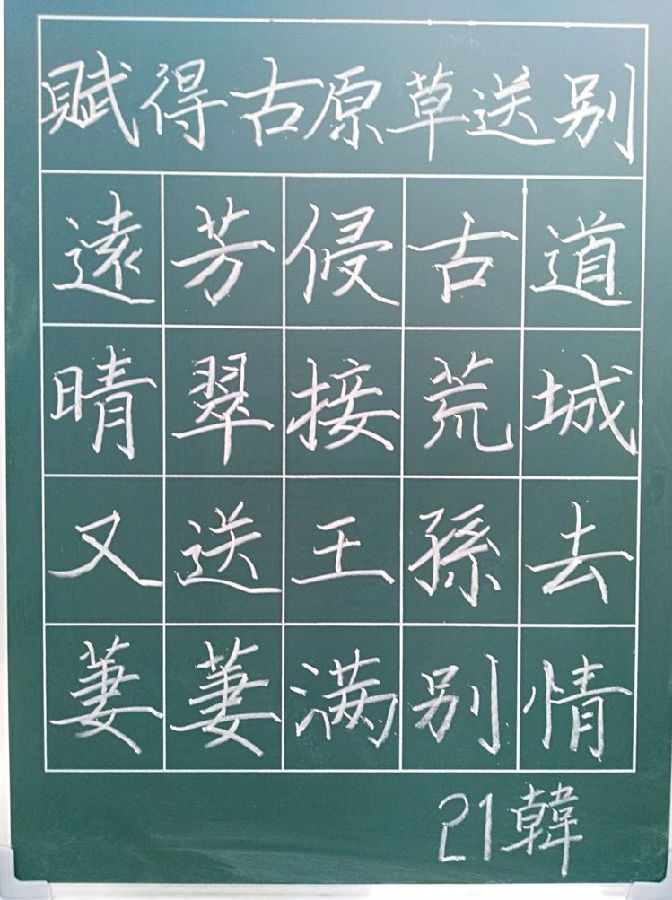 賦得古原草送别
遠芳侵古道
晴翠接荒城
又送王孫去
萋萋满别情
21韓